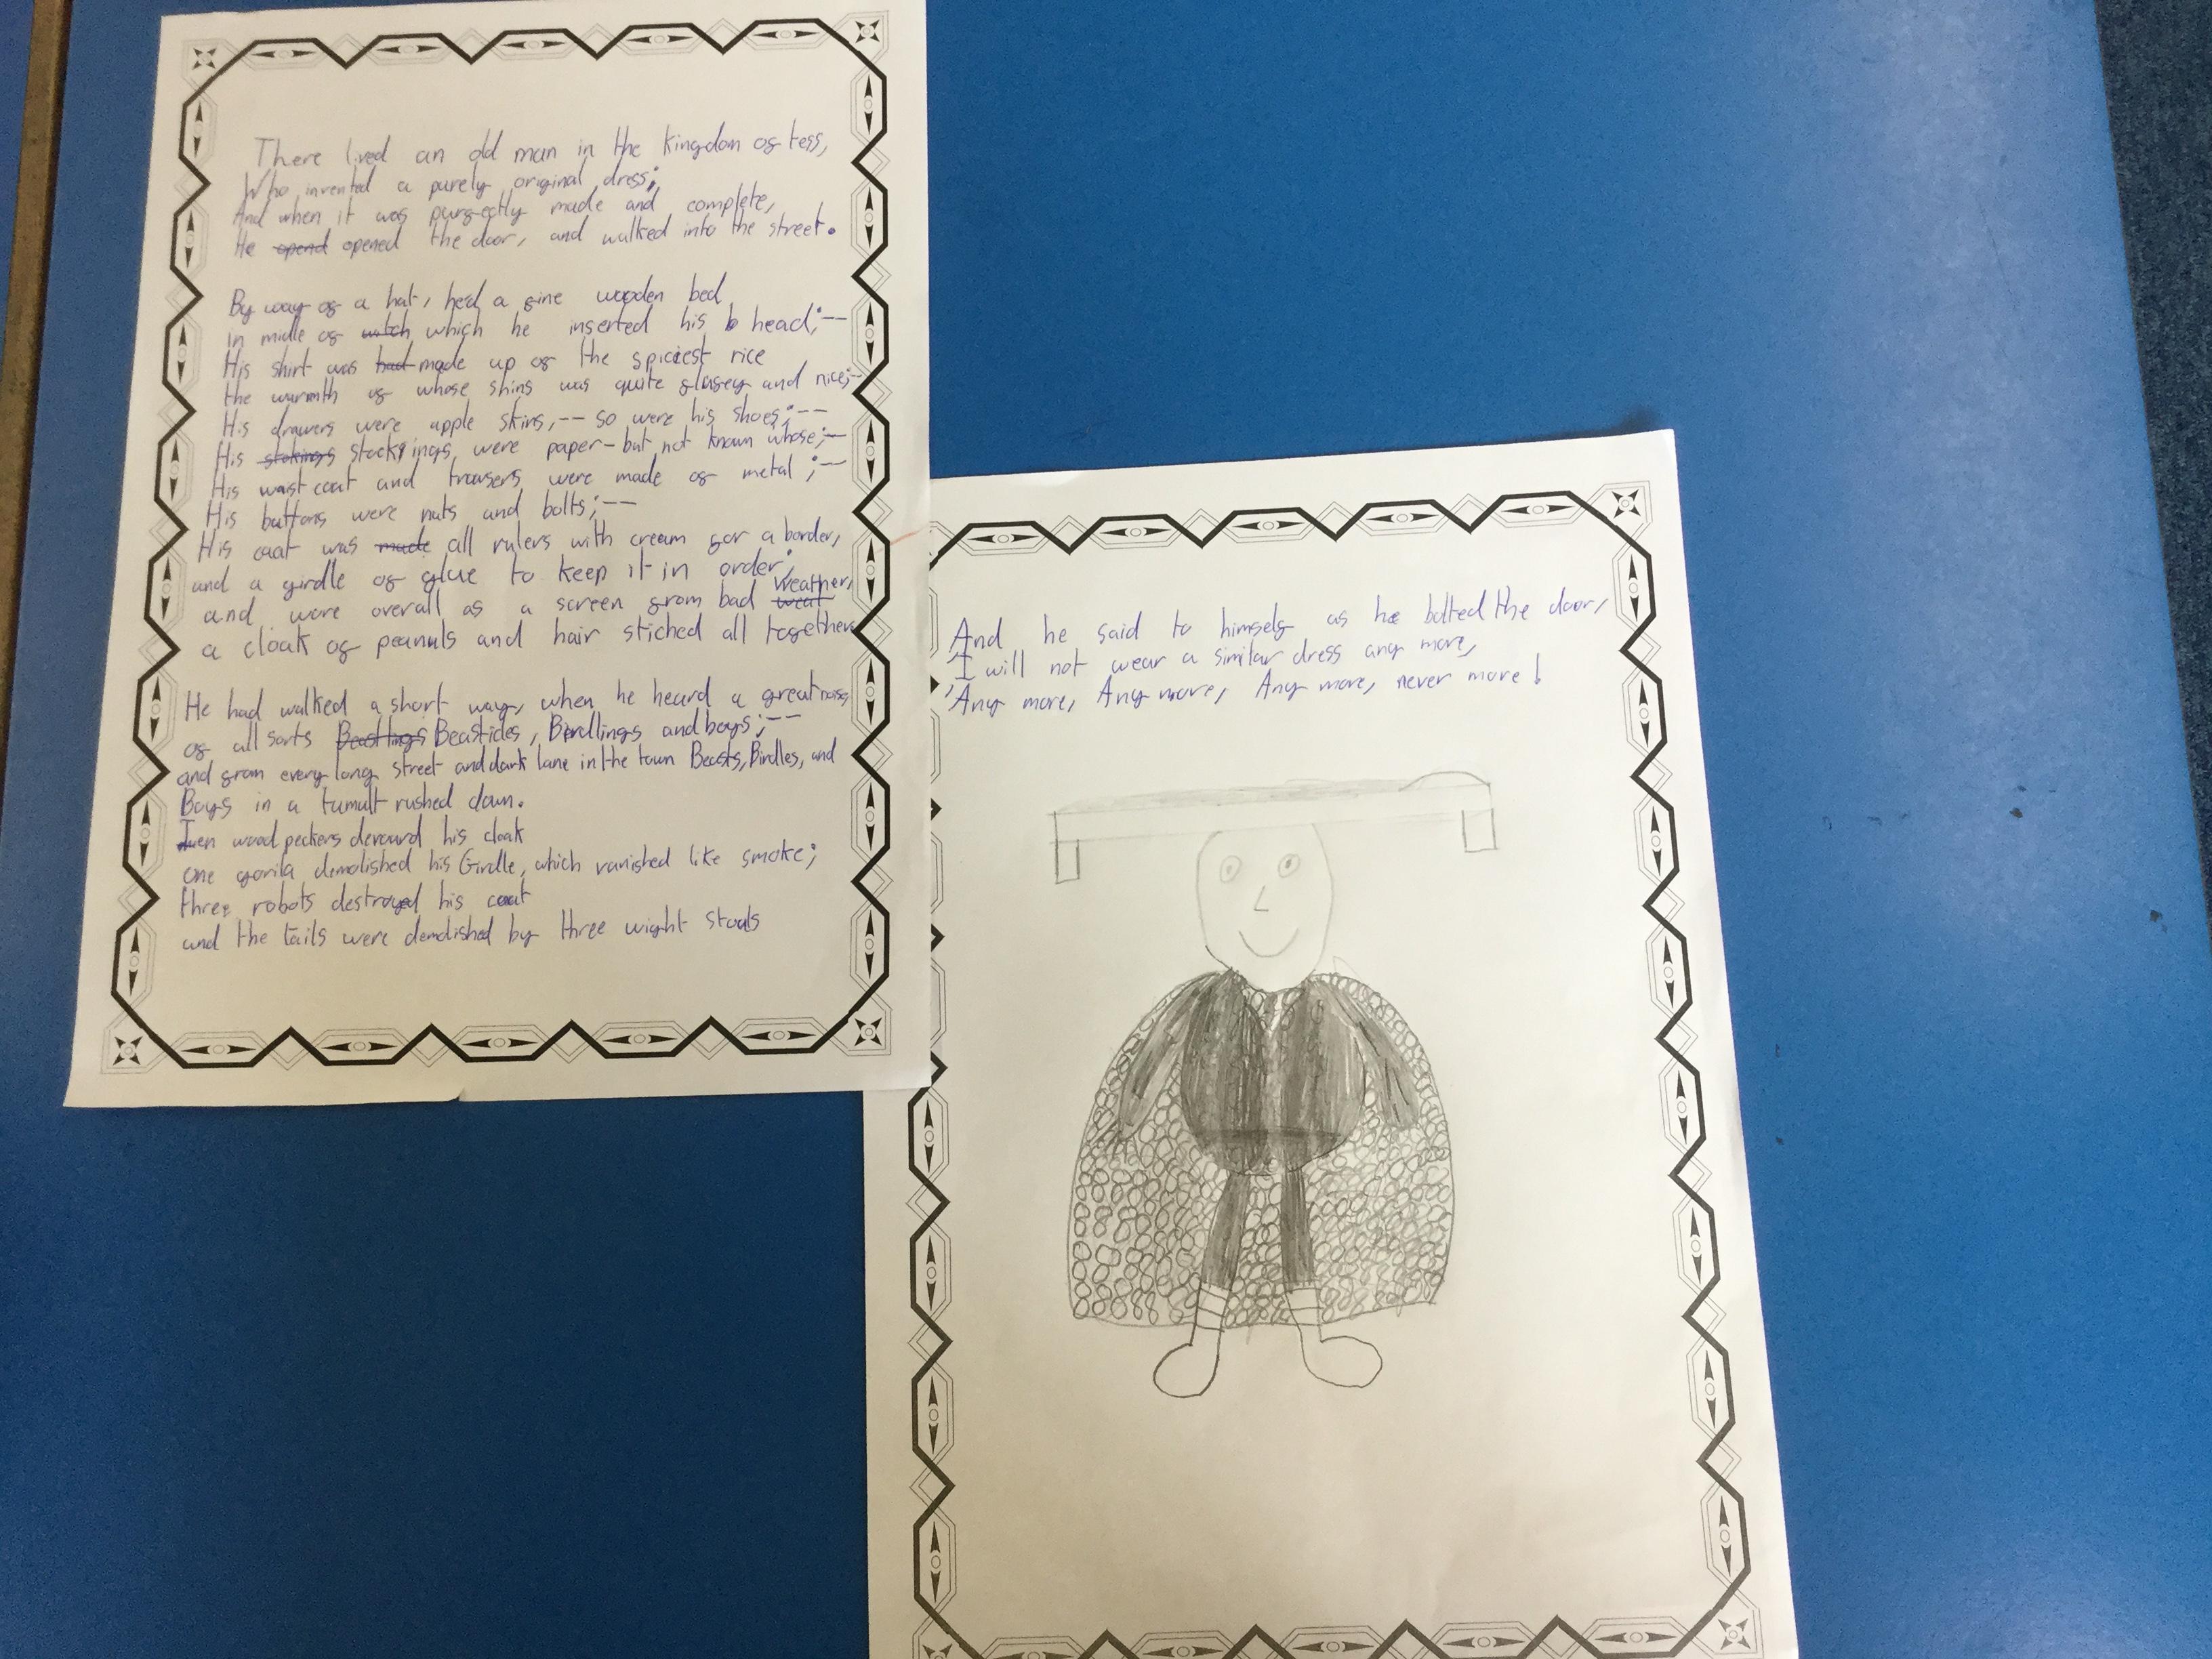 There lived an old man in the kingdom of tess,
Who invented a purely original dress;
And when it was purfectly made and complete,
He opend opened the door, and walked into the street.
By way of a hat, he'd a fine wooden bed
in midle of witch which he inserted his b head;--
His shirt was had made up of the spiciest rice
the warmth of whose shins was quite glasey and nice;-
His drawers were apple skins,-- so were his shoes;--
His stokings stockings were paper- but not known whose;--
His wastcoat and trousers were made of metal ;--
His buttons were nuts and bolts;--
His coat was made all rulers with cream for a border,
and a girdle of glue to keep it in order;
and wore overall as a screen from bad weat weather,
a cloak of peanuts and hair stiched all together.
He had walked a short way, when he heard a great noise,
of all sorts Beastlings Beasticles, Birdlings and boys;--
and from every long street and dark lane in the town Beasts, Birdles, and
Boys in a tumult rushed down.
Ten woodpeckers devourd his cloak
one gorila demolished his Girdle, which vanished like smoke;
three robots destroyed his coat
and the tails were demolished by three wight stoals
And he said to himself as he bolted the door,
'I will not wear a similar dress any more,
'Any more, Any more, Any more, never more!